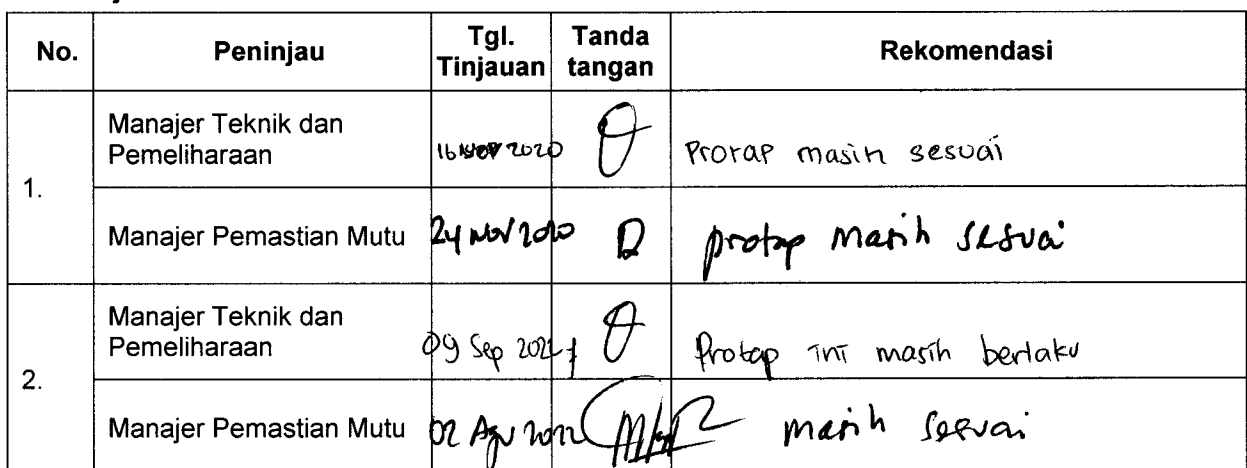 No. Peninjau Tgl. Tinjauan Tanda tangan Rekomendasi
1.
Manajer Teknik dan Pemeliharaan 16 Nov 2020 Protap masih sesuai
Manajer Pemastian Mutu 24 Nov 2020 protap masih sesuai
2.
Manajer Teknik dan Pemeliharaan 09 Sep 2022 Protap ini masih berlaku
Manajer Pemastian Mutu 02 Agu 2022 masih sesuai